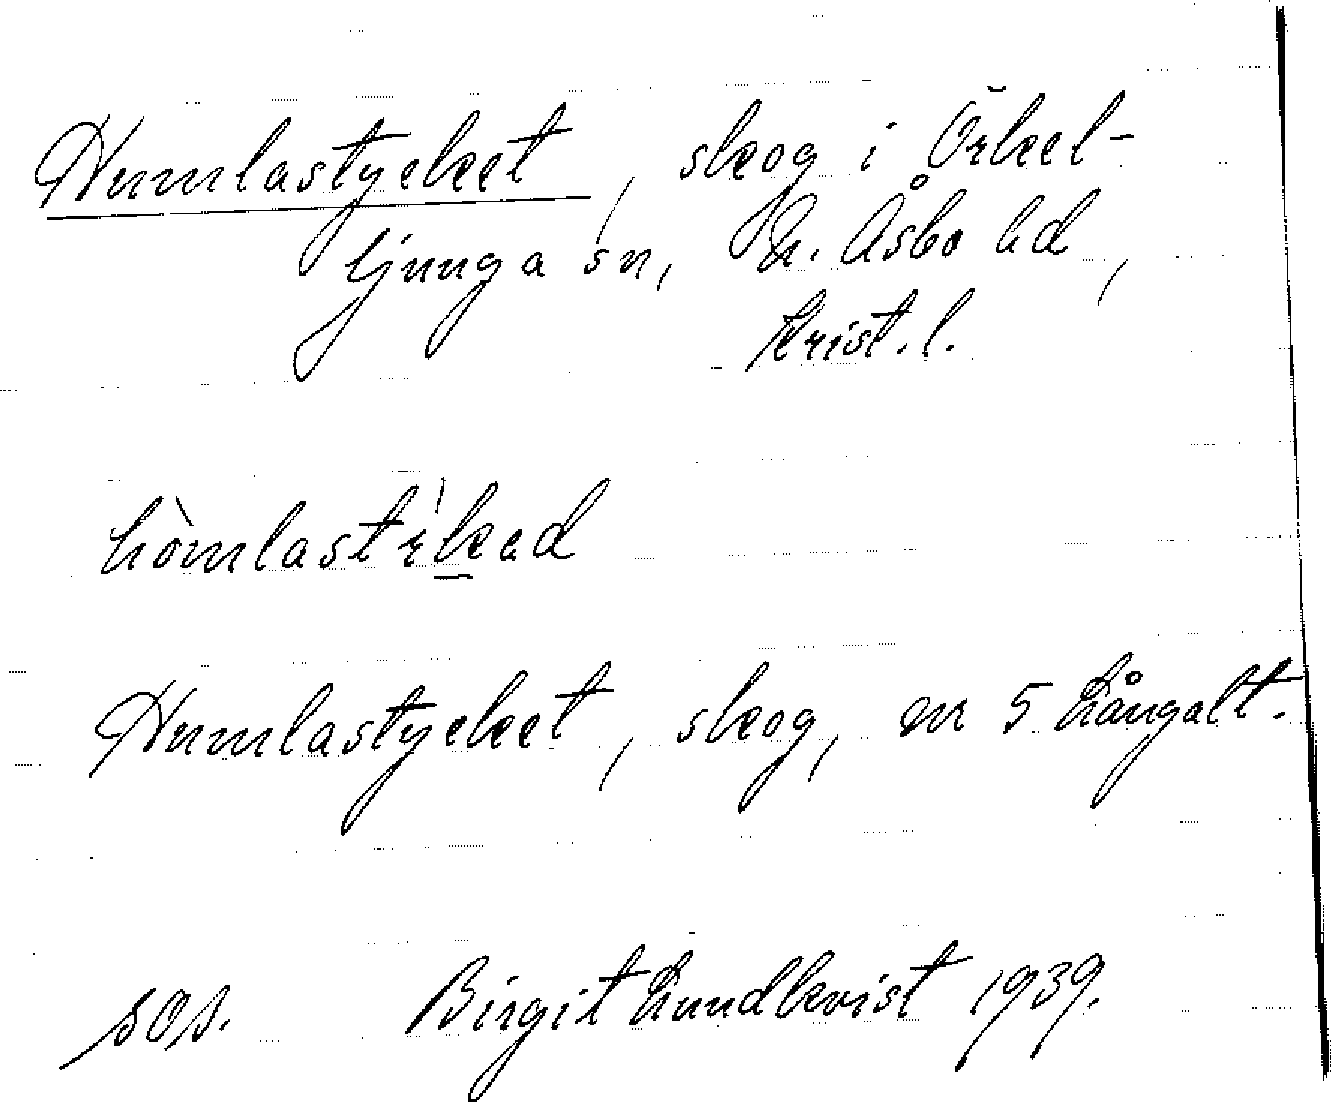 Humlastycket, skog i Örkel-
ljunga sn, N. Åsbo hd,
Krist. l.
Humlastycket, skog, nr 5 Långalt.
sOs. Birgit Lundkvist 1939.